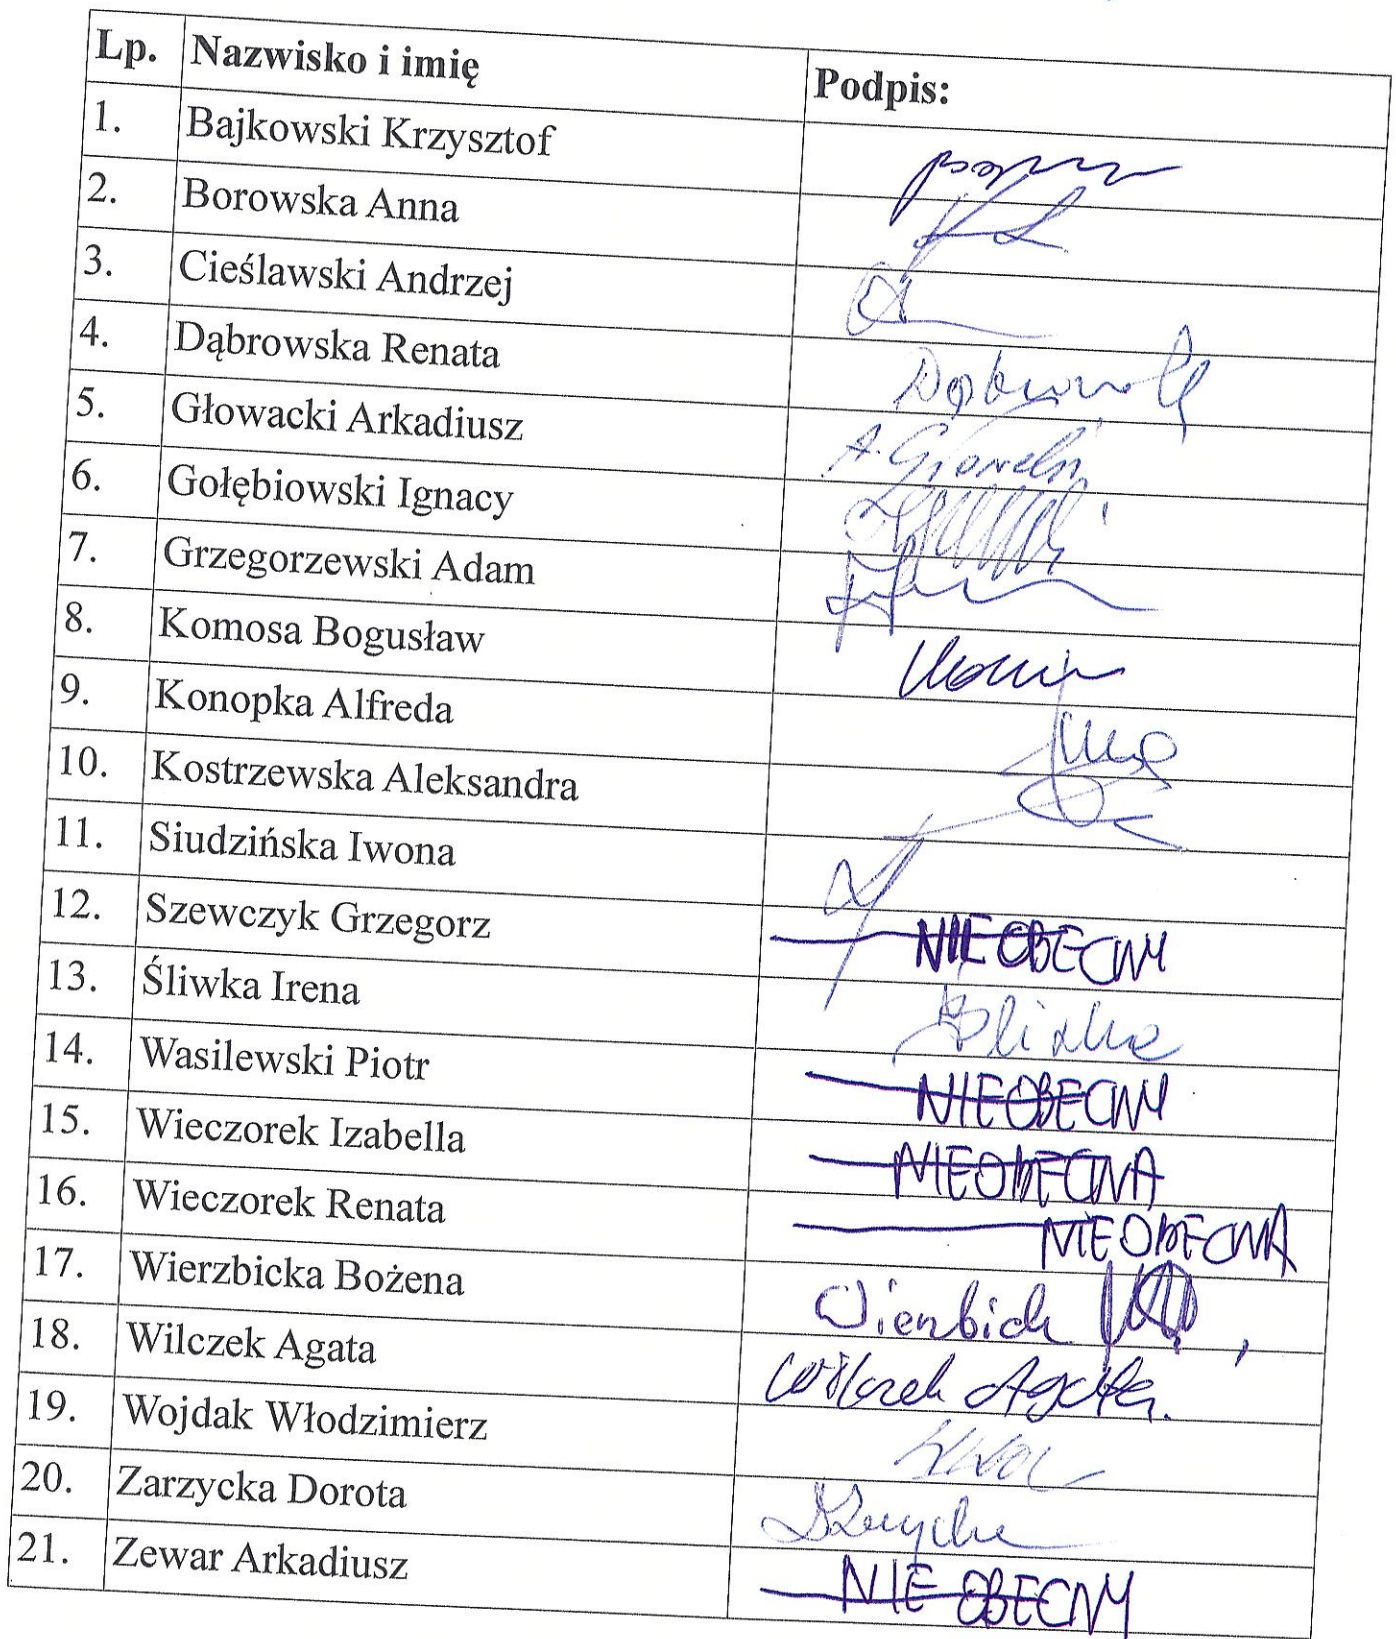 Lp. Nazwisko i imię Podpis:
1. Bajkowski Krzysztof
2. Borowska Anna
3. Cieślawski Andrzej
4. Dąbrowska Renata
5. Głowacki Arkadiusz
6. Gołębiowski Ignacy
7. Grzegorzewski Adam
8. Komosa Bogusław
9. Konopka Alfreda
10. Kostrzewska Aleksandra
11. Siudzińska Iwona
12. Szewczyk Grzegorz NIEOBECNY
13. Śliwka Irena
14. Wasilewski Piotr NIEOBECNY
15. Wieczorek Izabella NIEOBECNA
16. Wieczorek Renata NIEOBECNA
17. Wierzbicka Bożena
18. Wilczek Agata Wilczek Agata
19. Wojdak Włodzimierz
20. Zarzycka Dorota
21. Zewar Arkadiusz NIE OBECNY